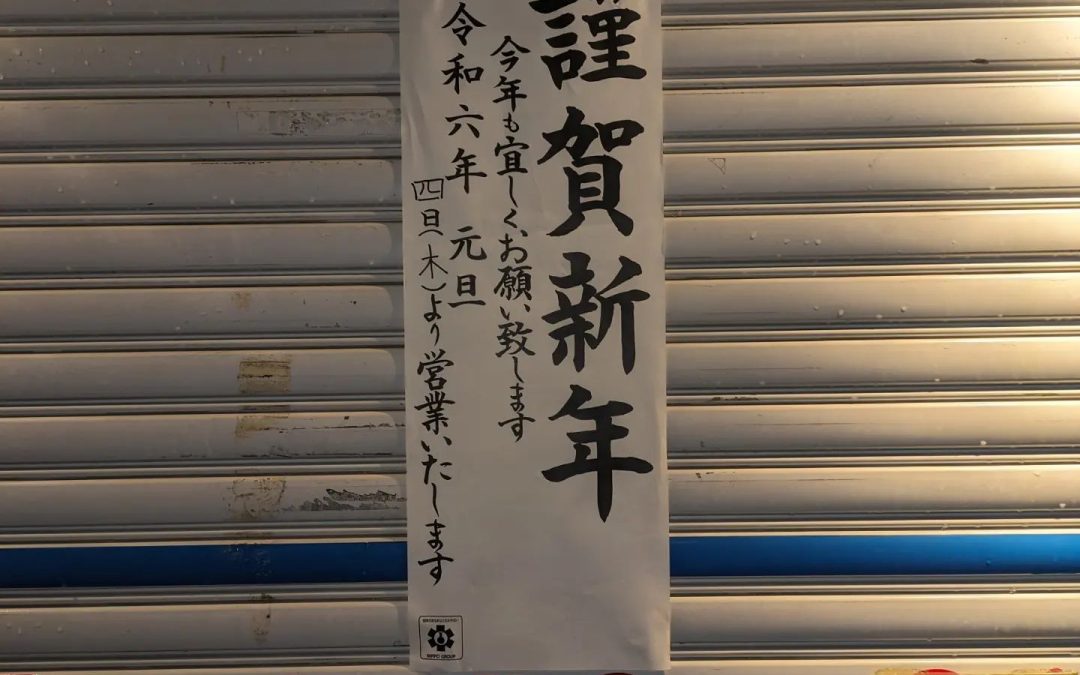 謹賀新年
今年も宜しく、お願い致します
令和六年 元旦
四日(木)より営業いたします
NIPPO GROUP